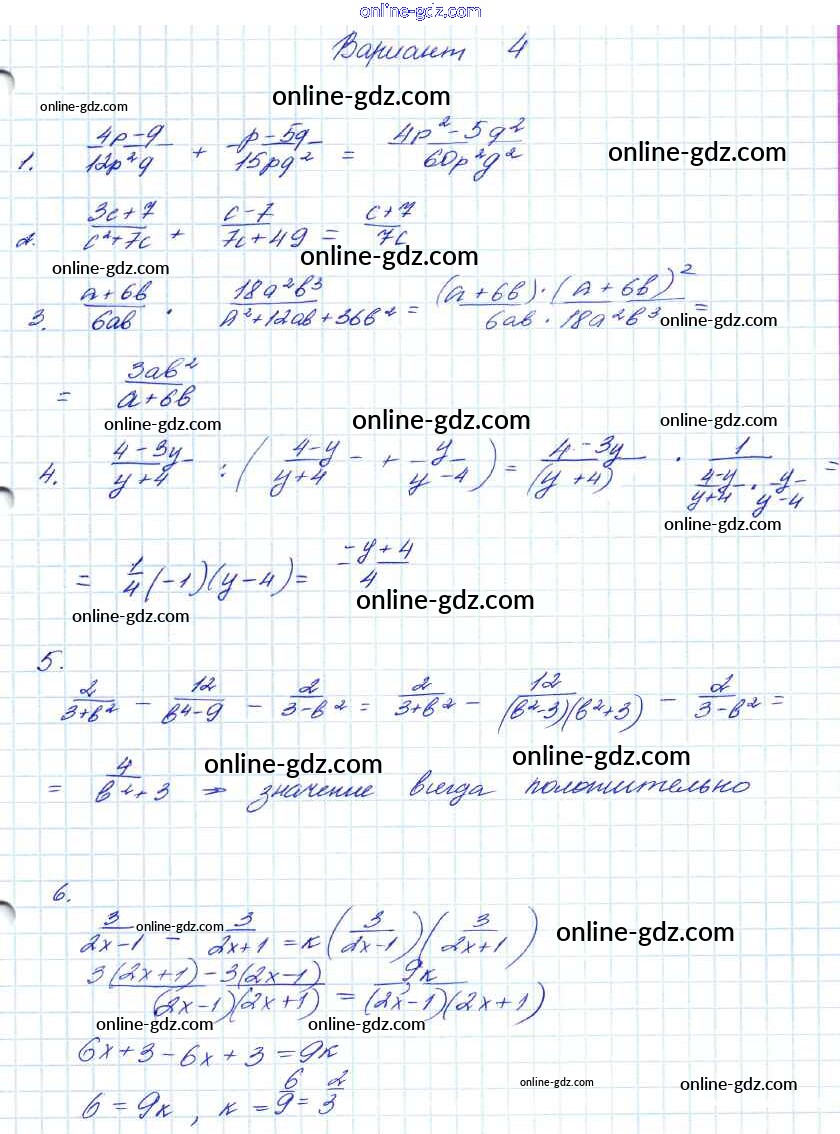 online-gdz.com
Вариант 4
online-gdz.com
online-gdz.com
1. (4p-q)/(12p²q) + (p-5q)/(15pq²) = (4p²-5q²)/(60p²q²)
online-gdz.com
2. (3c+7)/(c²+7c) + (c-7)/(7c+49) = (c+7)/(7c)
online-gdz.com
online-gdz.com
3. (a+6b)/(6ab) · (18a²b³)/(a²+12ab+36b²) = ((a+6b)·(a+6b)²)/(6ab·18a²b³) =
online-gdz.com
= (3ab²)/(a+6b)
online-gdz.com
online-gdz.com
online-gdz.com
4. (4-3y)/(y+4) : ((4-y)/(y+4) + y/(y-4)) = (4-3y)/(y+4) · 1/((4-y)/(y+4) · y/(y-4)) =
online-gdz.com
= 1/4(-1)(y-4) = (-y+4)/4
online-gdz.com
online-gdz.com
5.
2/(3+b²) - 12/(b⁴-9) - 2/(3-b²) = 2/(3+b²) - 12/((b²-3)(b²+3)) - 2/(3-b²) =
online-gdz.com
online-gdz.com
= 4/(b²+3) ⇒ значение всегда положительно
6.
3/(2x-1) - 3/(2x+1) = к(3/(2x-1))(3/(2x+1))
online-gdz.com
online-gdz.com
(3(2x+1)-3(2x-1))/((2x-1)(2x+1)) = 9к/((2x-1)(2x+1))
online-gdz.com
online-gdz.com
6x+3-6x+3=9к
online-gdz.com
online-gdz.com
6=9к, к=6/9=2/3